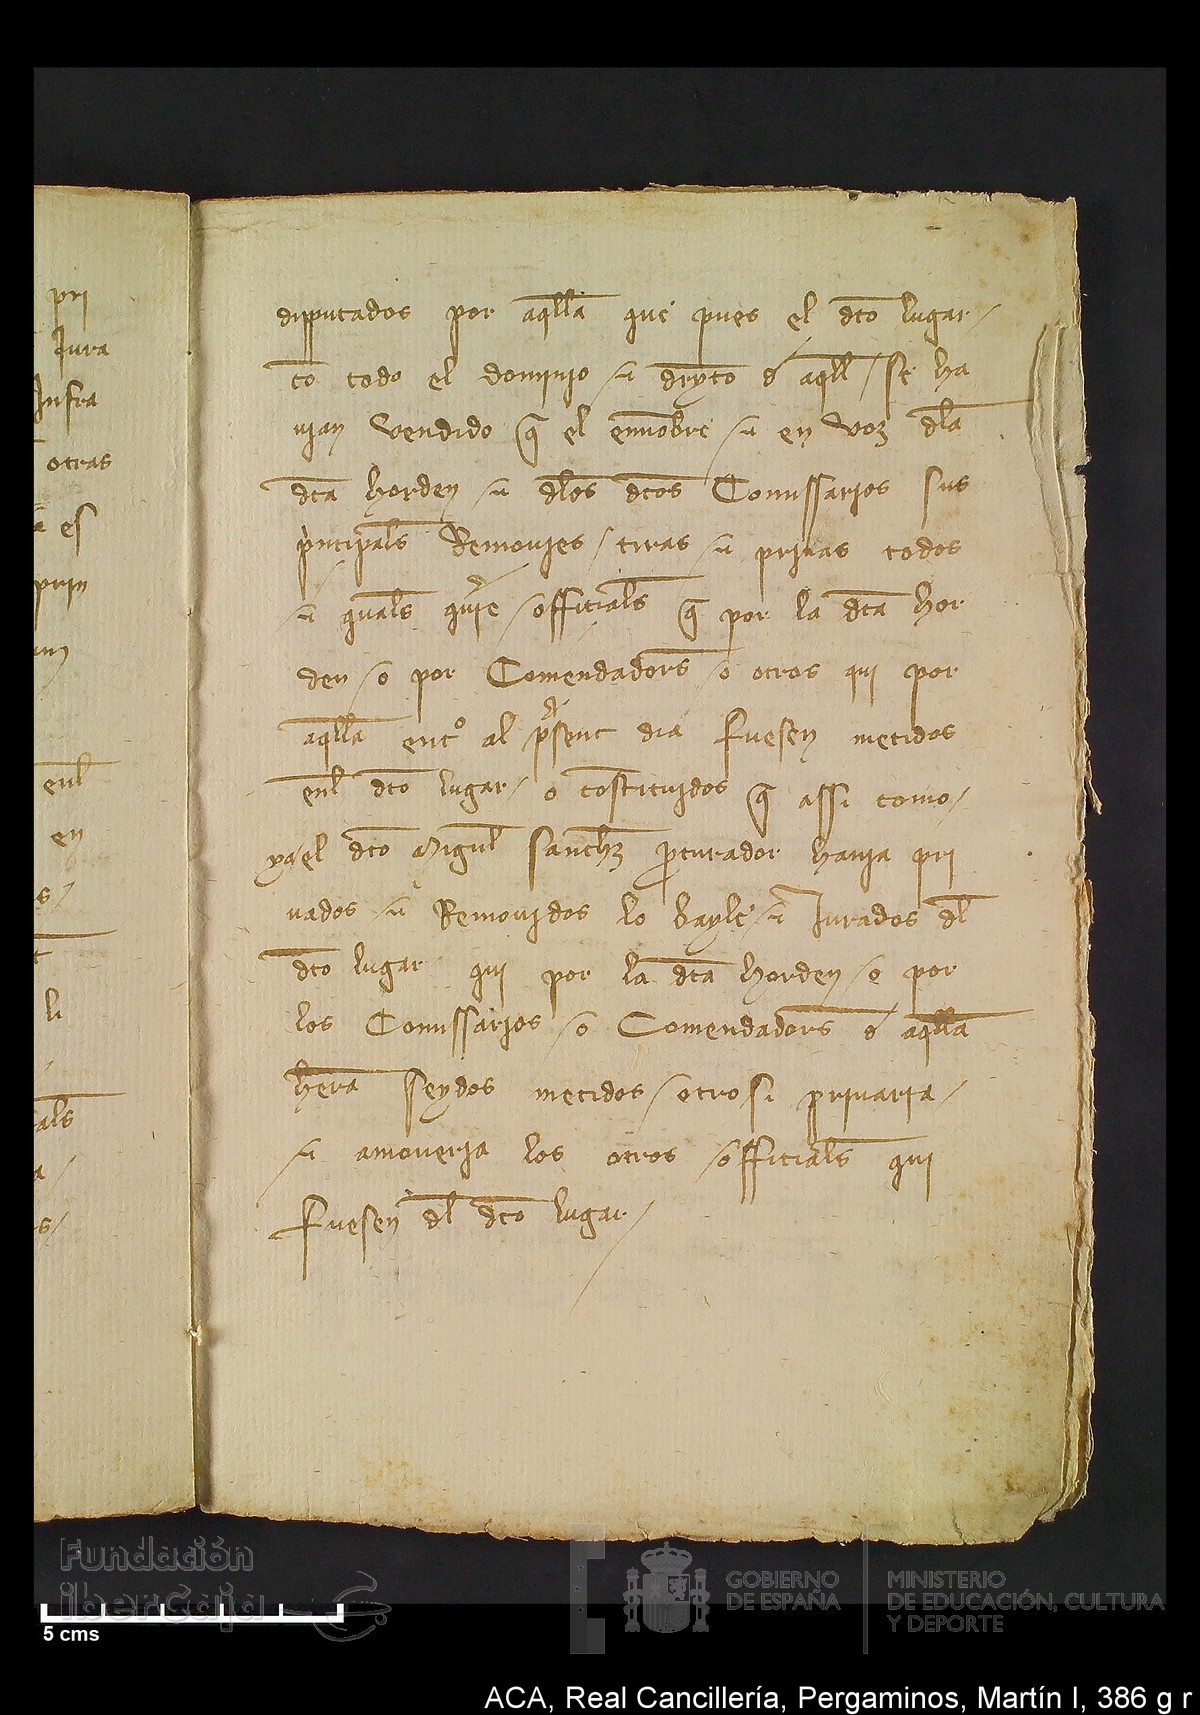 pri
Jura
Infra
otras
es
prin
enl
en
li
als
diputados por aqlla que pues el dto lugar
co todo el dominio / & dreyto d aqll / se ha
vian vendido q el ennobre / & en voz dla
dta horden / & dlos dtos Comissarios sus
principals Removies / tiras / & privas todos
& quals quiere / officials q por la dta hor
den / o por Comendadors / o otros qui por
aqlla ent° al present dia fuesen metidos
enl dto lugar / o costituidos q assi como /
ya el dto Miguel Sanchz procurador havia pri
vados / & Removidos lo bayle / & Jurados dl
dto lugar qui por la dta horden / o por
los Comissarios / o Comendadors d aqlla
hera seydos metidos / otro si privaria /
& amoveria los otros / officials qui
fuesen dl dto lugar /
Fundación
iberCaja
5 cms
GOBIERNO
DE ESPAÑA
MINISTERIO
DE EDUCACIÓN, CULTURA
Y DEPORTE
ACA, Real Cancillería, Pergaminos, Martín I, 386 g r